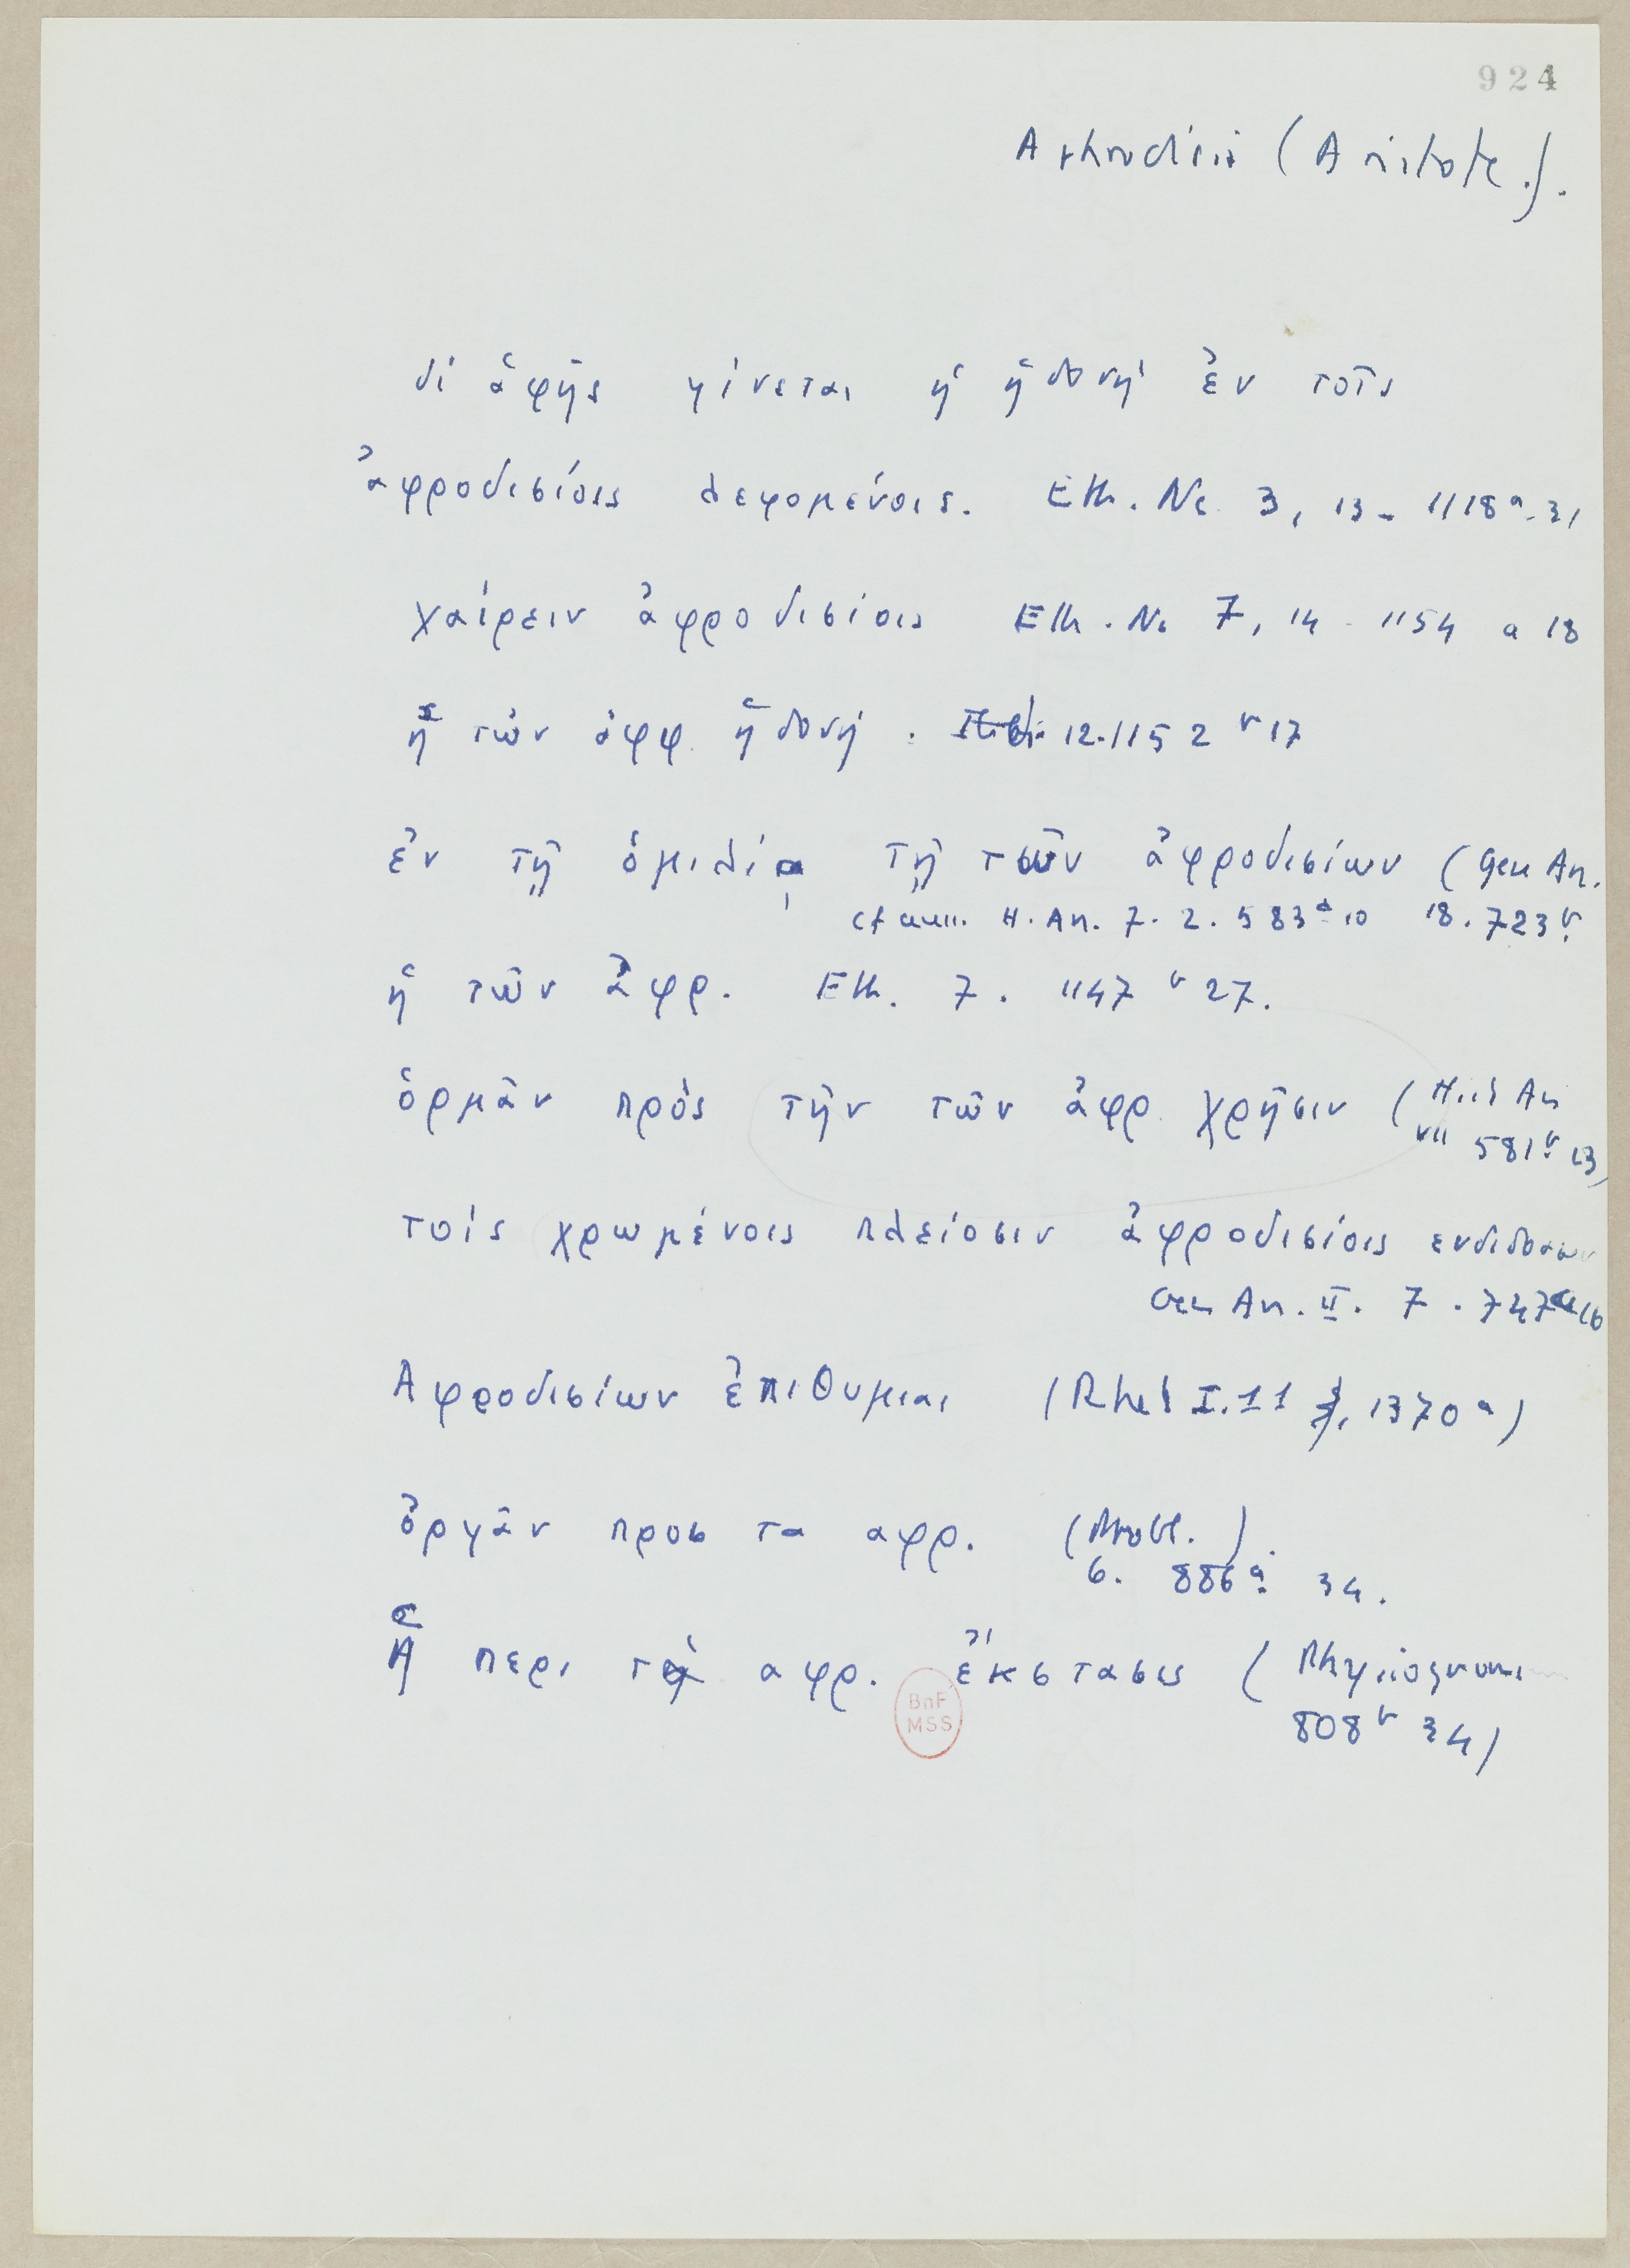 924
Aphrodisia (Aristote).
δι ἁφῆς γίνεται ἡ ἡδονή ἐν τοῖς
ἀφροδισίοις λεγομένοις. Eth. Nc 3, 13 - 1118 a - 31
χαίρειν ἀφροδισίοις Eth. Nc 7, 14 - 1154 a 18
ἡ τῶν ἀφρ. ἡδονή . Ibid. 12. 1152 b 17
ἐν τῇ ὁμιλίᾳ τῇ τῶν ἀφροδισίων (Gen An.
cf aussi. H. An. 7. 2. 583 a 10 18. 723 b.
ἡ τῶν ἀφρ. Eth. 7. 1147 b 27.
ὁρμᾶν πρὸς τὴν τῶν ἀφρ. χρῆσιν (Hist An
VII 581 b. 13)
τοίς χρωμένοις πλείοσιν ἀφροδισίοις
Gen An. II. 7. 747 a 16
Αφροδισίων ἐπιθυμιαι (Rhet I. 11 1370 a)
ὀργᾶν προσ τα αφρ. (Probl. ).
6. 886 a. 34.
Ἡ περι τὰ αφρ. ἔκστασις ( Physiognom
808 b 34)
BnF
MSS